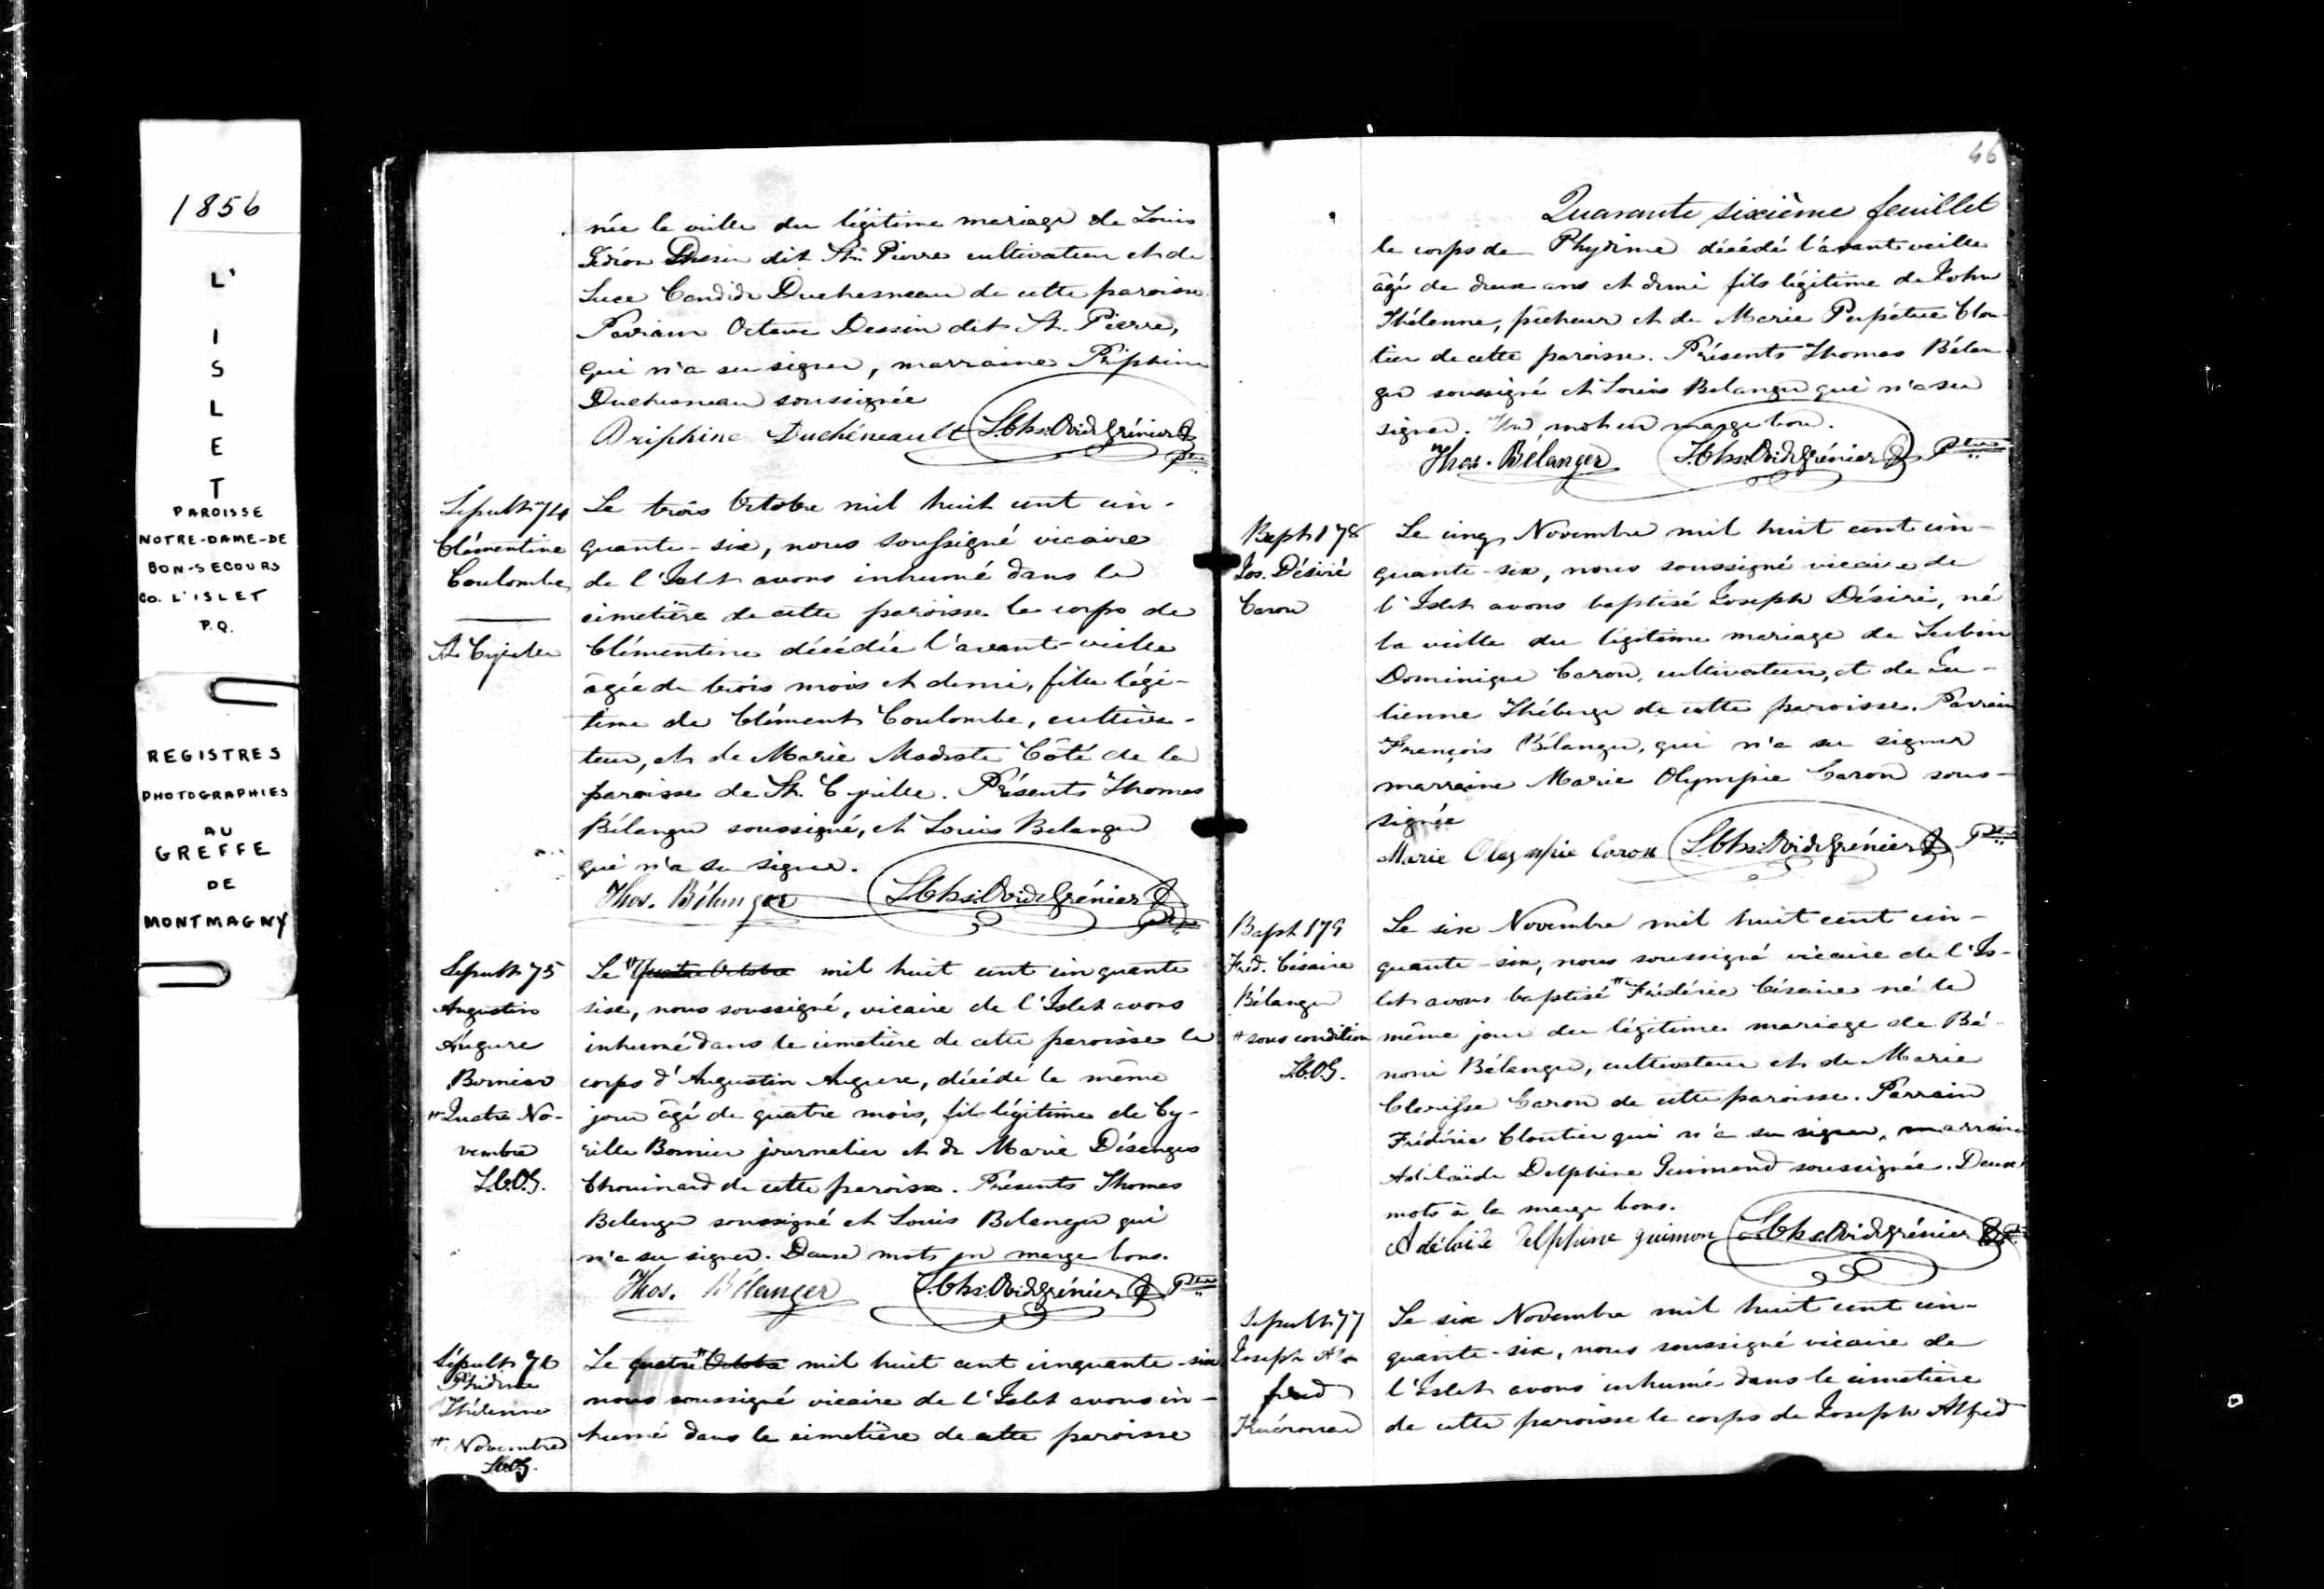 1856
L'
I
S
L
E
T
PAROISSE
NOTRE-DAME-DE
BON-SECOURS
CO. L'ISLET
P.Q.
REGISTRES
PHOTOGRAPHIES
AU
GREFFE
DE
MONTMAGNY
née la veille du légitime mariage de Louis
Gédéon Dessin dit St. Pierre cultivateur et de
Luce Candide Duchesneau de cette paroisse.
Parrain Octave Dessin dit St. Pierre,
qui n'a su signer, marraine
Duchesneau soussignée
Duchéneault L. Chs. Ovide Grénier
Ptre
Sépult. 74
Clémentine
Coulombe
St. Cyrille
Le trois Octobre mil huit cent cin-
quante-six, nous soussigné vicaire
de l'Islet avons inhumé dans le
cimetière de cette paroisse le corps de
Clémentine décédée l'avant-veille
âgée de trois mois et demi, fille légi-
time de Clément Coulombe, cultiva-
teur, et de Marie Modeste Côté de la
paroisse de St. Cyrille. Présents Thomas
Bélanger soussigné, et Louis Belanger
qui n'a su signer.
Thos. Bélanger L. Chs. Ovide Grénier
Ptre
Sépult. 75
Augustin
Augure
Bernier
# Quatre No-
vembre
L.C.O.G.
Le # Quatre Octobre mil huit cent cinquante
six, nous soussigné, vicaire de l'Islet avons
inhumé dans le cimetière de cette paroisse le
corps d'Augustin Augure, décédé le même
jour âgé de quatre mois, fils légitime de Cy-
rille Bernier journalier et de Marie Désanges
Chouinard de cette paroisse. Présents Thomas
Belanger soussigné et Louis Belanger qui
n'a su signer. Deux mots en marge bons.
Thos. Bélanger L. Chs. Ovide Grénier Ptre
Sépult. 76
Phidime
Thélenne
# Novembre
L.C.O.G.
Le quatre # Octobre mil huit cent cinquante-six
nous soussigné vicaire de l'Islet avons in-
humé dans le cimetière de cette paroisse
46
Quarante sixième feuillet
le corps de Phydime décédé l'avant veille
âgé de deux ans et demi fils légitime de John
Thélenne, pêcheur et de Marie Perpétue Clou-
tier de cette paroisse. Présents Thomas Bélan-
ger soussigné et Louis Belanger qui n'a su
signer. Un mot en marge bon.
Thos. Bélanger L. Chs. Ovide Grénier Ptre
Bapt. 178
Jos. Désiré
Caron
Le cinq Novembre mil huit cent cin-
quante-six, nous soussigné vicaire de
l'Islet avons baptisé Joseph Désiré, né
la veille du légitime mariage de Lubin
Dominique Caron, cultivateur, et de Lu-
cienne Théberge de cette paroisse. Parrain
François Bélanger, qui n'a su signer
marraine Marie Olympie Caron sous-
signée
Marie Olympie Caron L. Chs. Ovide Grénier Ptre
Bapt. 179
Fréd. Césaire
Bélanger
# sous condition
L.C.O.G.
Le six Novembre mil huit cent cin-
quante-six, nous soussigné vicaire de l'Is-
let avons baptisé # Frédéric Césaire né le
même jour du légitime mariage de Bé-
noni Bélanger, cultivateur et de Marie
Clarisse Caron de cette paroisse. Parrain
Frédéric Cloutier qui n'a su signer, marraine
Adélaïde Delphine Guimond soussignée. Deux
mots à la marge bons.
Adélaïde Delphine guimon L. Chs. Ovide Grénier Ptre
Sépult. 77
Joseph Al-
fred
Le six Novembre mil huit cent cin-
quante-six, nous soussigné vicaire de
l'Islet avons inhumé dans le cimetière
de cette paroisse le corps de Joseph Alfred